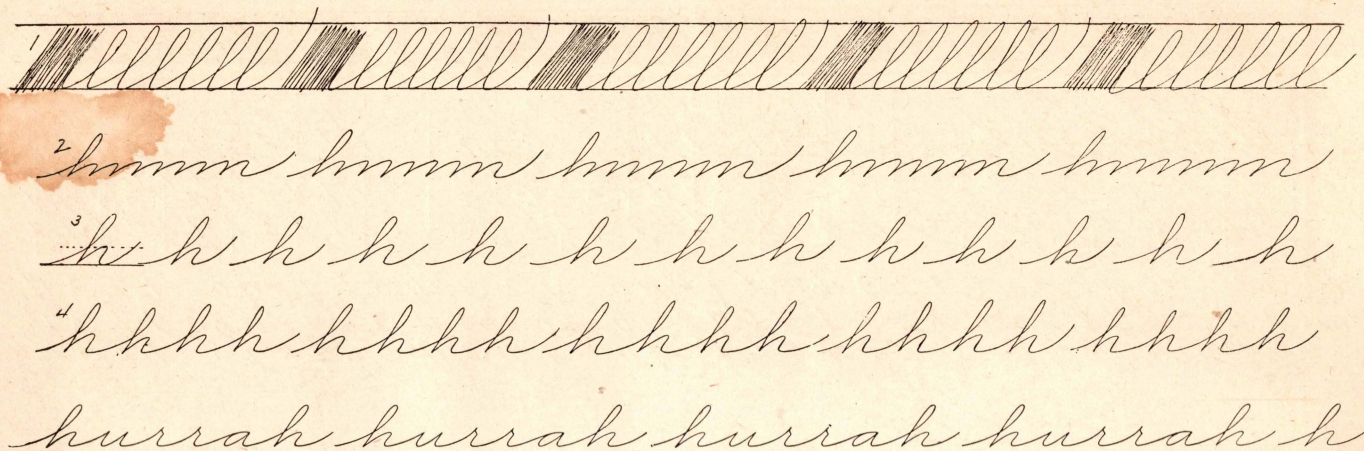 1
2
3 h h h h h h h h h h h h h
4 hhhh hhhh hhhh hhhh hhhh
hurrah hurrah hurrah hurrah h